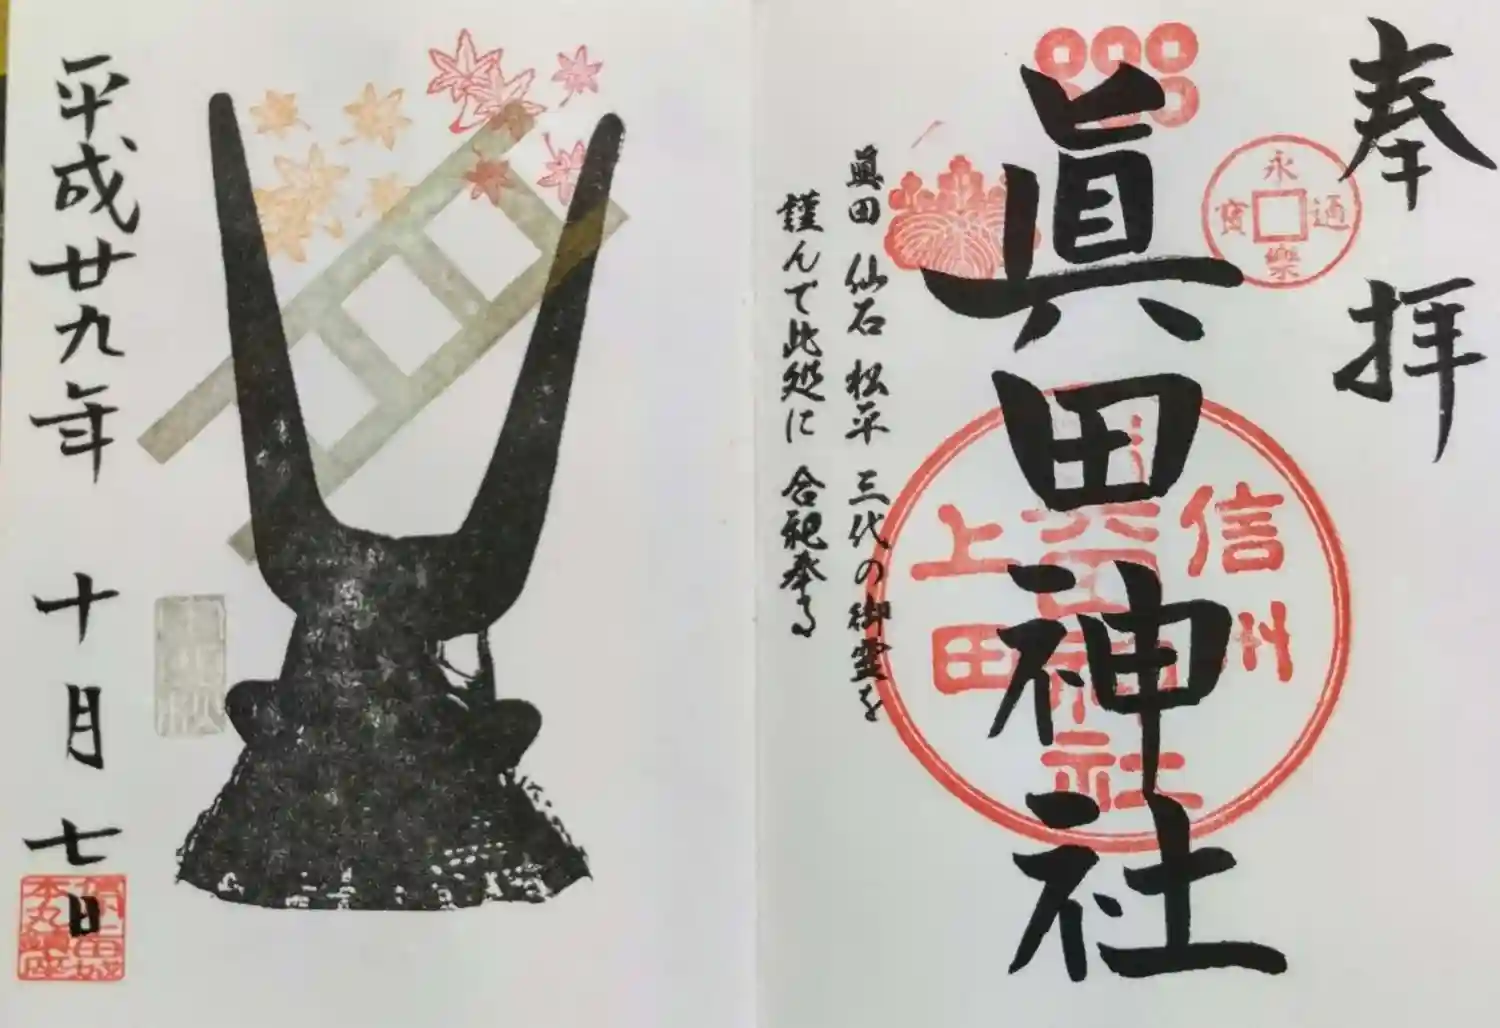 奉拝
眞田神社
永樂通寳
信州
上田
眞田神社
眞田 仙石 松平 三代の御霊を
謹んで此処に 合祀奉る
平成廿九年 十月七日
本丸鎮座